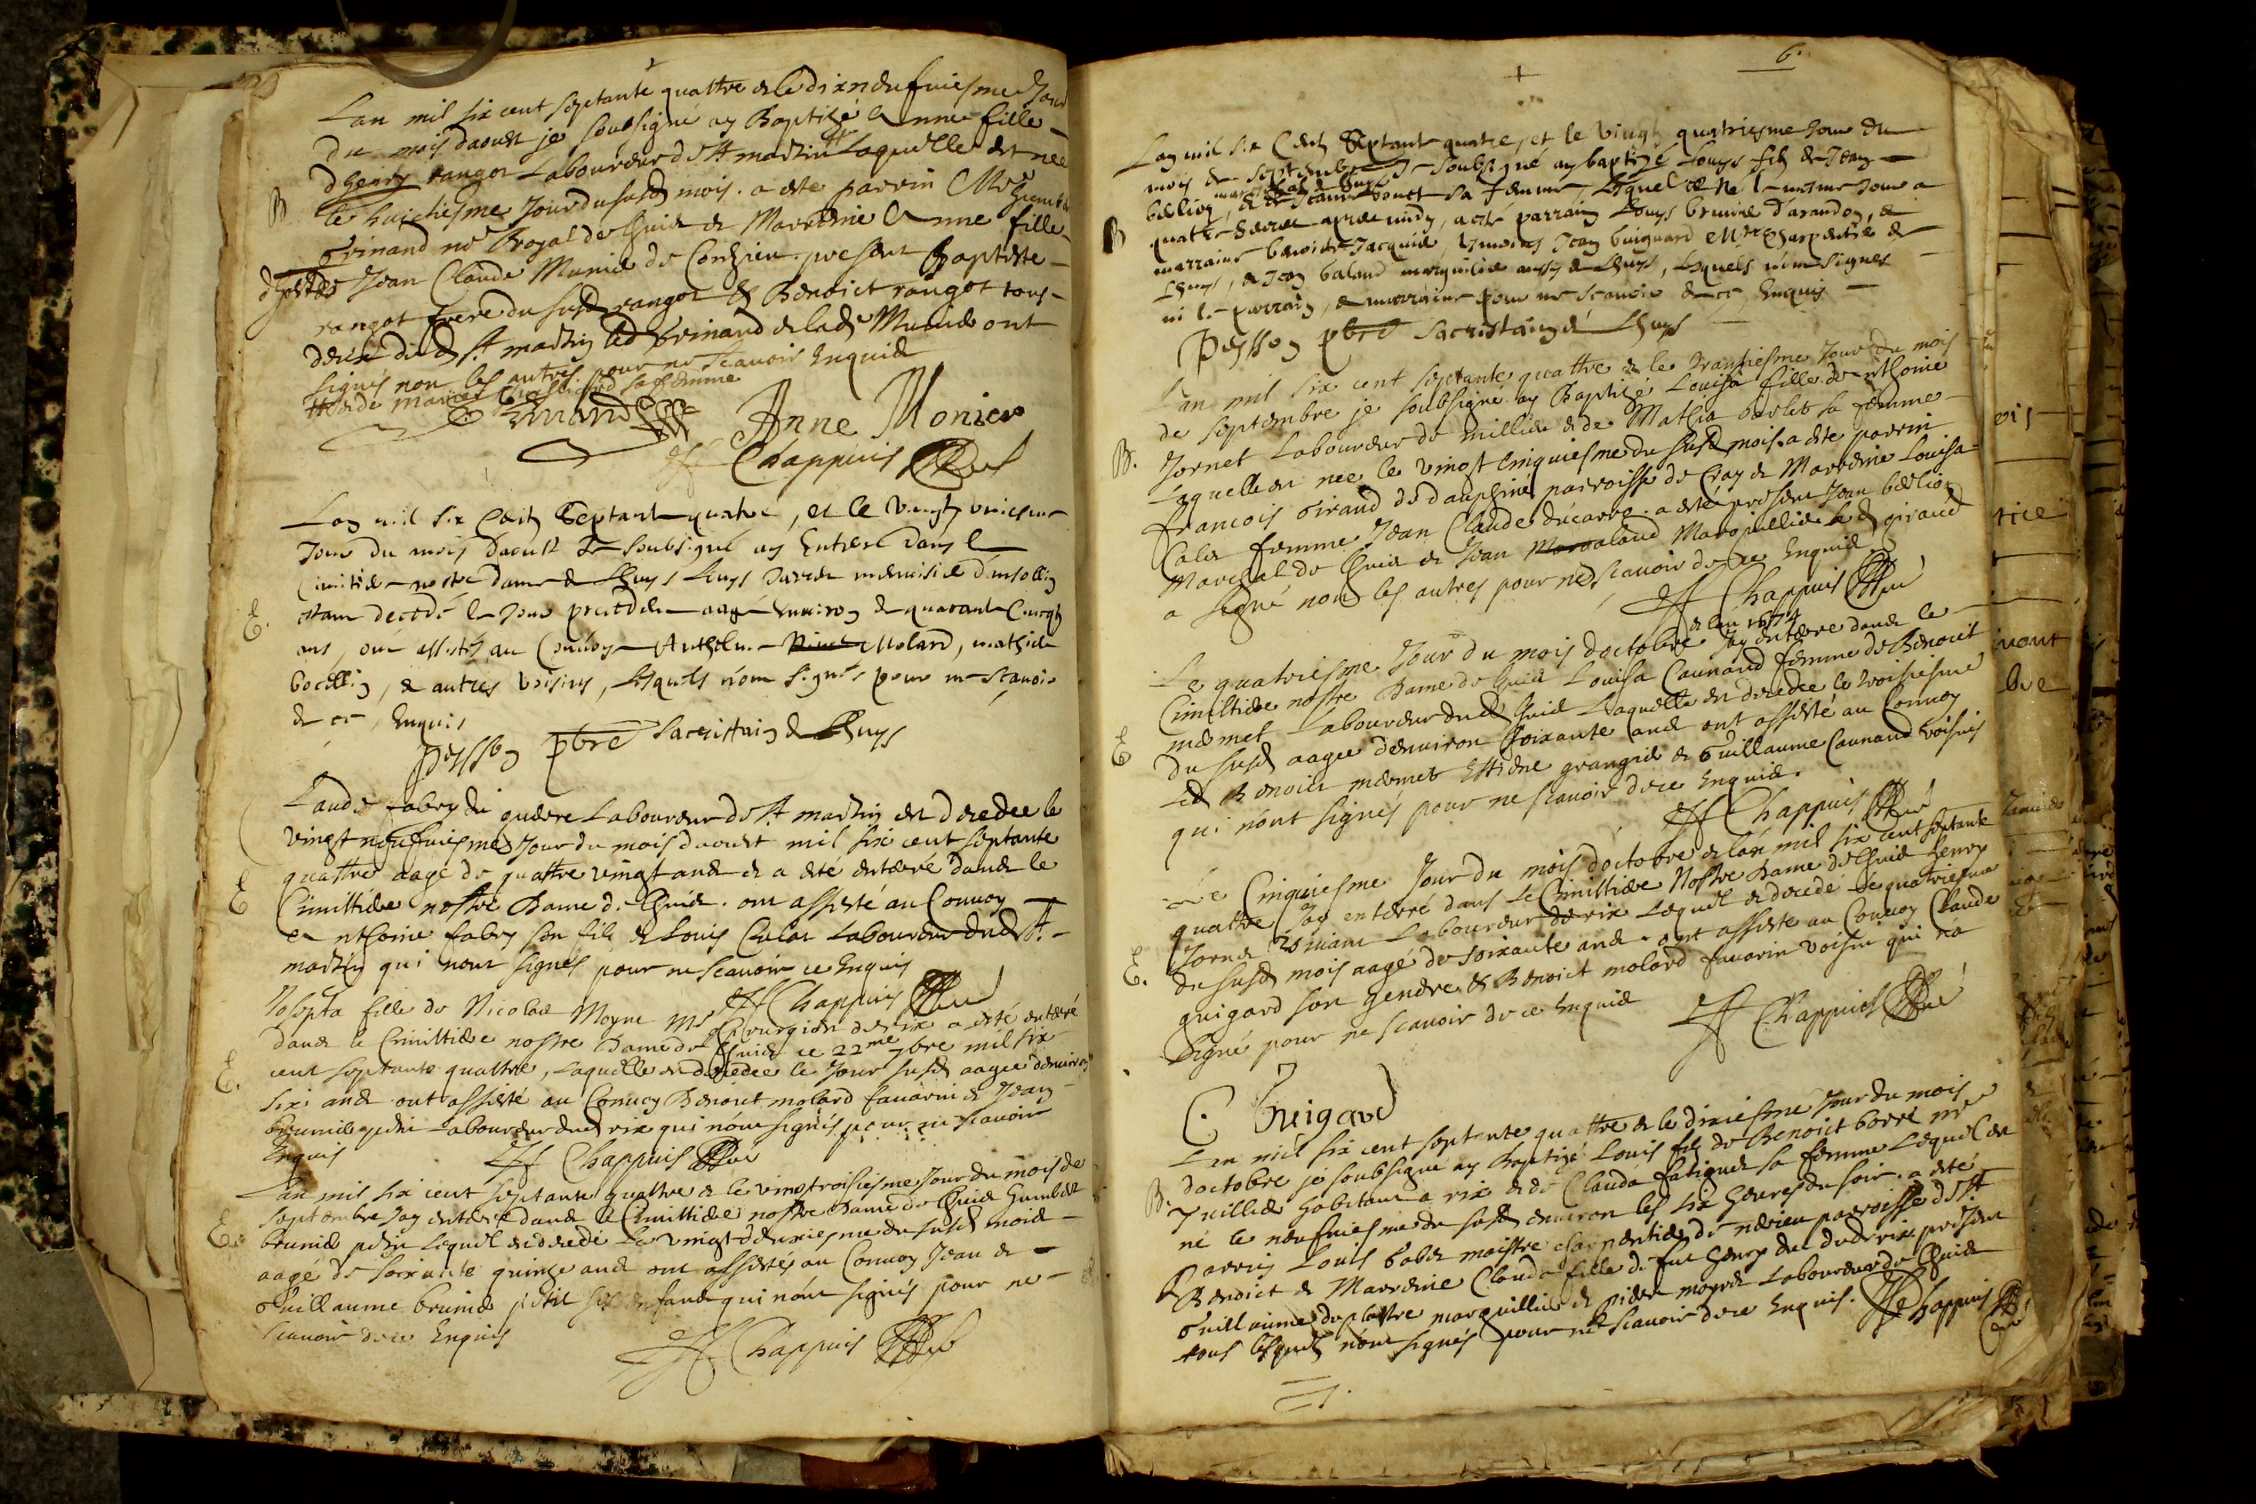 Lan mil six cent septante quattre & le dixneufuiesme Jour
du mois daoust je soubsigné ay Baptizé Anne fille
dhenry rangot Laboureur de St martin Laquelle est née
B
le huictiesme Jour du susd mois. a esté parrin Mre
Brinand nore Royal de Lhuis & Marrenie Anne fille
Jean Claude Munier de present Baptiste
rangot frere du susd rangot & Benoict rangot tous
deux dud St martin led brinand & lade Munier ont
signés non les autres pour ne scauoir Enquis
& de sa femme
Brinand
Anne Monier
Chappuis Curé
Lan mil six Cents Septant quatre, et le vingt uniesme
Jour du mois daoust Je soubsigné ay Enterré dans le
Cimitiere nostre dame de Lhuys Luys
E.
estant decedé le Jour precedent aagé Enuiron de quarante Cinq
ans, ont assistés au Conuoy Anthelme Molard, mathieu
bocellin, & autres voisins, Lesquels nont signés pour ne scauoir
de ce, Enquis
Peysson pbre Sacristain de Lhuys
Laude fabry du guerre Laboureur de St martin est decedee le
vingt neufuiesme Jour du mois daoust mil six cent septante
quattre aagé de quattre vingt ans & a esté enterré dans le
E
Cimittiere nostre Dame de Lhuis. ont assisté au Conuoy
Anthoine fabry son fils & Louis Calat Laboureur dud St
martin qui nont signés pour ne scauoir ce Enquis
Chappuis Curé
Josepta fille de Nicolas Moyne Mre Chirurgien de rix a esté enterré
dans le Cimittiere nostre Dame de Lhuis ce 22me 7bre mil six
E.
cent septante quattre, Laquelle est decedee le Jour susd aagee denuiron
six ans ont assisté au Conuoy Benoict molard fauarin & Jean
brunier Laboureur dud rix qui nont signés pour ne scauoir
Enquis
Chappuis Curé
Lan mil six cent septante quattre & le vingtroisiesme Jour du mois de
septembre Jay enterré dans le Cimittiere nostre Dame de Lhuis humbert
E.
brunier Lequel est decedé Le vingt deuxiesme du susd mois
aagé de soixante quinze ans ont assistés au Conuoy Jean &
Guillaume brunier petit ses enfans qui nont signés pour ne
scauoir de ce Enquis
Chappuis Curé
6.
Lan mil six Cents Septant quatre, et le vingt quatriesme Jour du
mois de septembre Je soubsigné ay baptizé Louys fils de Jean
marechal de Lhuys
bellion, & de sa femme, Lequel est né le mesme Jour a
B
quatre heures apres midy, a esté parrain Louys brunier d'arandon, &
marraine benoiste Jacquier, tesmoins Jean guiguard Mre Charpentier de
Lhuys, & Jean baland marguilier aussy de Lhuys, Lesquels nont signés
ni le parrain, & marraine pour ne scauoir de ce, Enquis
Peysson pbre Sacristain de Lhuys
Lan mil six cent septante quattre & le Trantiesme Jour du mois
de septembre je soubsigné ay Baptizé Louisa fille de Anthoine
B.
Jornet Laboureur de millieu & de Mathia sa femme
Laquelle est nee le vingt Cinquiesme du susd mois. a esté parrin
francois Giraud de dauphiné parroisse de Cray & Marrenie Louisa
Calat femme Jean Claude ducarre. a esté present Jean bellion
Marechal de Lhuis & Jean baland Marguillier led giraud
a signé non les autres pour ne scauoir de ce Enquis
Chappuis Curé
& lan 1674
Le quatriesme Jour du mois doctobre Jay enterre dans le
Cimittiere nostre Dame de Lhuis Louisa Caunand femme de Benoict
E
mermet Laboureur dud Lhuis Laquelle est decedee le troisiesme
du susd aagee denuiron soixante ans ont assisté au Conuoy
Led Benoict mermet Estiene grangier & Guillaume Caunand voisins
qui nont signés pour ne scauoir de ce Enquis.
Chappuis Curé
Le Cinquiesme Jour du mois doctobre & lan mil six cent septante
quattre Jay enterré dans Le Cimittiere Nostre Dame de Lhuis henry
E.
Laboureur de rix Lequel est decedé Le quatriesme
du susd mois aagé de soixante ans. ont assisté au Conuoy Claude
guigard son gendre & Benoict molard fauarin voisin qui na
signé pour ne scauoir de ce Enquis
Chappuis Curé
C. Guigard
Lan mil six cent septente quattre & le dixiesme Jour du mois
doctobre je soubsigné ay Baptizé Louis fils de Benoict borré
B.
habitant a rix & de Clauda fatigues sa femme Lequel est
né le neufuiesme du susd enuiron les six heures du soir. a esté
Parrin Louis babet maistre charpentier de merieu parroisse de St
Benoict & Marrenie Clauda fille de feu henry dud rix present
Guillaume duplastre marguillier & pierre moyret Laboureur de Lhuis
tous lesquels nont signés pour ne scauoir de ce Enquis. Chappuis
Curé